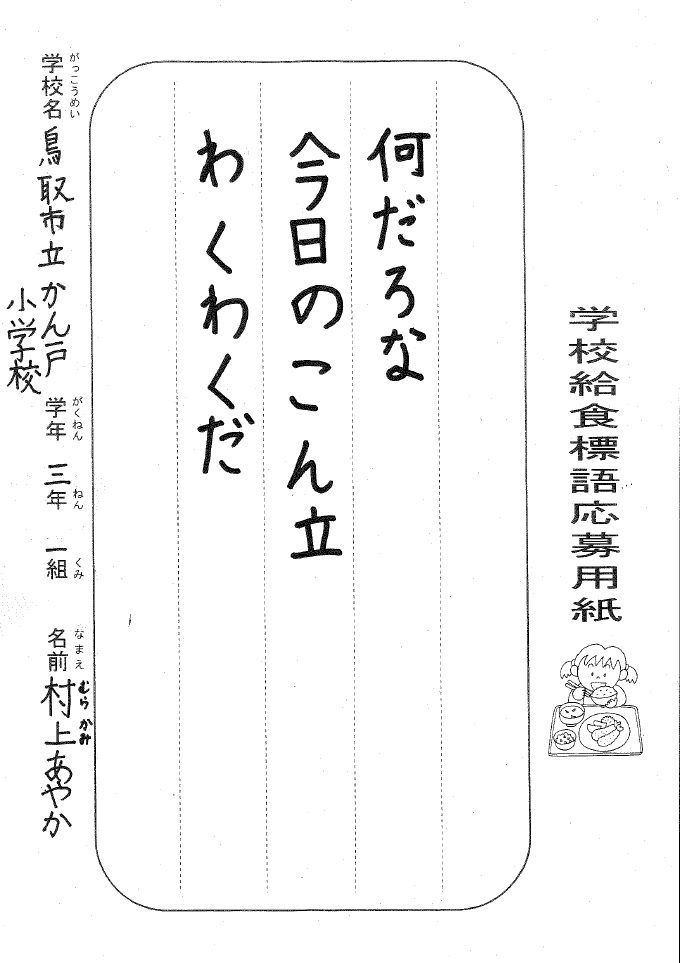 学校給食標語応募用紙
何だろな
今日のこん立
わくわくだ
学校名 鳥取市立かん戸
小学校
がっこうめい
学年 三年 一組
がくねん ねん くみ
名前 村上あやか
なまえ むらかみ